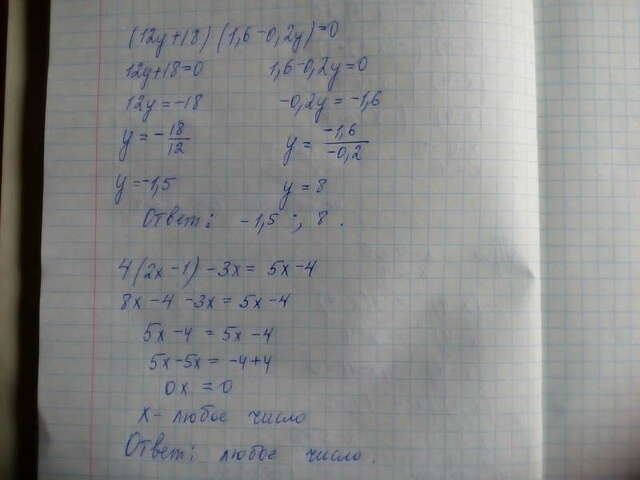 (12y+18)(1,6-0,2y)=0
12y+18=0 1,6-0,2y=0
12y=-18 -0,2y=-1,6
y=-18/12 y=-1,6/-0,2
y=-1,5 y=8
Ответ: -1,5; 8.
4(2x-1)-3x=5x-4
8x-4-3x=5x-4
5x-4=5x-4
5x-5x=-4+4
0x=0
x-любое число
Ответ: любое число.